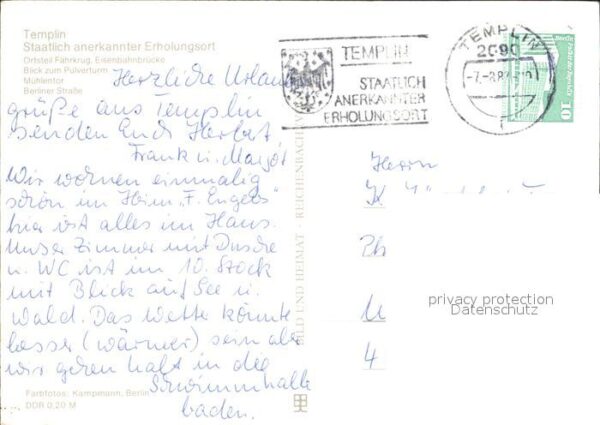 Templin
Staatlich anerkannter Erholungsort
Ortsteil Fährkrug, Eisenbahnbrücke
Blick zum Pulverturm
Mühlentor
Berliner Straße
Herzliche Urlaubs
grüße aus Templin
senden Euch Herbert,
Frank u. Margot
Wir wohnen einmalig
schön im Heim „F. Engels"
hier ist alles im Haus.
Unser Zimmer mit Dusche
u. WC ist im 10. Stock
mit Blick auf See u.
Wald. Das Wetter könnte
besser (wärmer) sein aber
wir gehen halt in die
Schwimmhalle
baden.
Farbfotos: Kampmann, Berlin
DDR 0,20 M
BILD UND HEIMAT · REICHENBACH
TEMPLIN
STAATLICH
ANERKANNTER
ERHOLUNGSORT
TEMPLIN
2090
10
Herrn
K
Ph
U
4
privacy protection
Datenschutz